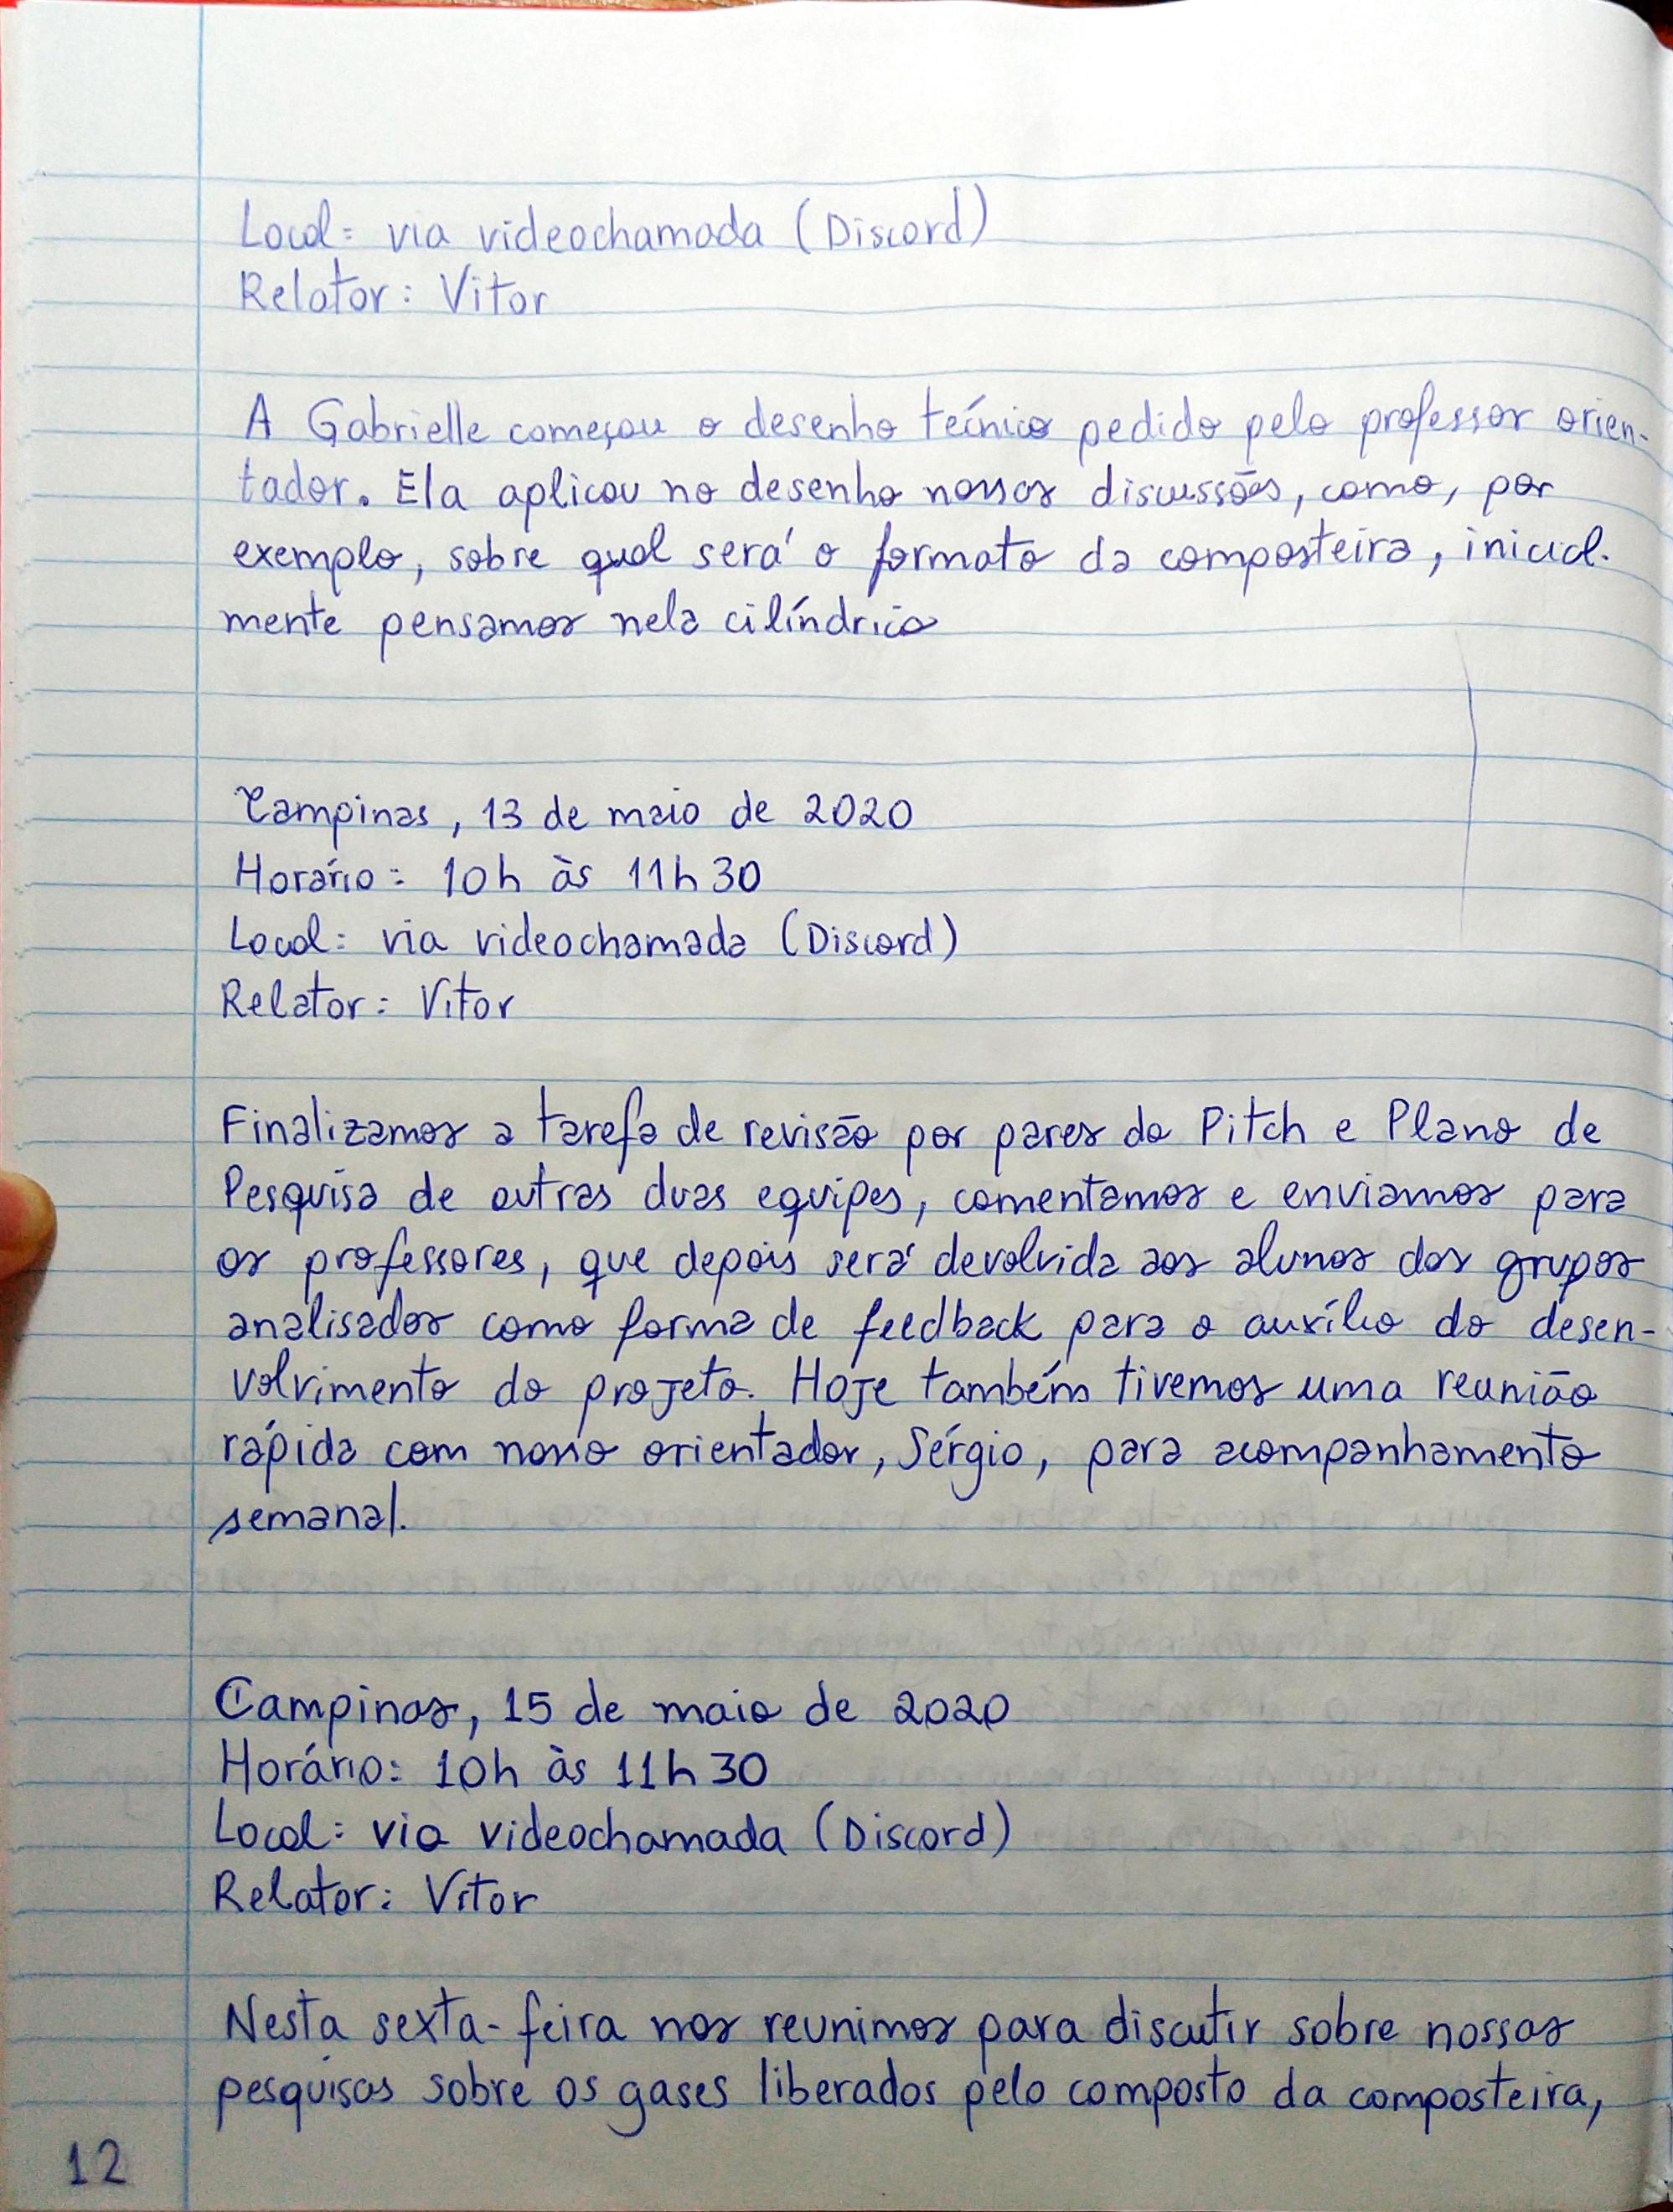 Local: via videochamada (Discord)
Relator: Vitor
A Gabrielle começou o desenho técnico pedido pelo professor orien-
tador. Ela aplicou no desenho nossas discussões, como, por
exemplo, sobre qual será o formato da composteira, inicial-
mente pensamos nela cilíndrica
Campinas, 13 de maio de 2020
Horário: 10h às 11h30
Local: via videochamada (Discord)
Relator: Vitor
Finalizamos a tarefa de revisão por pares do Pitch e Plano de
Pesquisa de outras duas equipes, comentamos e enviamos para
os professores, que depois será devolvida aos alunos dos grupos
analisados como forma de feedback para o auxílio do desen-
volvimento do projeto. Hoje também tivemos uma reunião
rápida com nosso orientador, Sérgio, para acompanhamento
semanal.
Campinas, 15 de maio de 2020
Horário: 10h às 11h30
Local: via videochamada (Discord)
Relator: Vitor
Nesta sexta-feira nos reunimos para discutir sobre nossas
pesquisas sobre os gases liberados pelo composto da composteira,
12